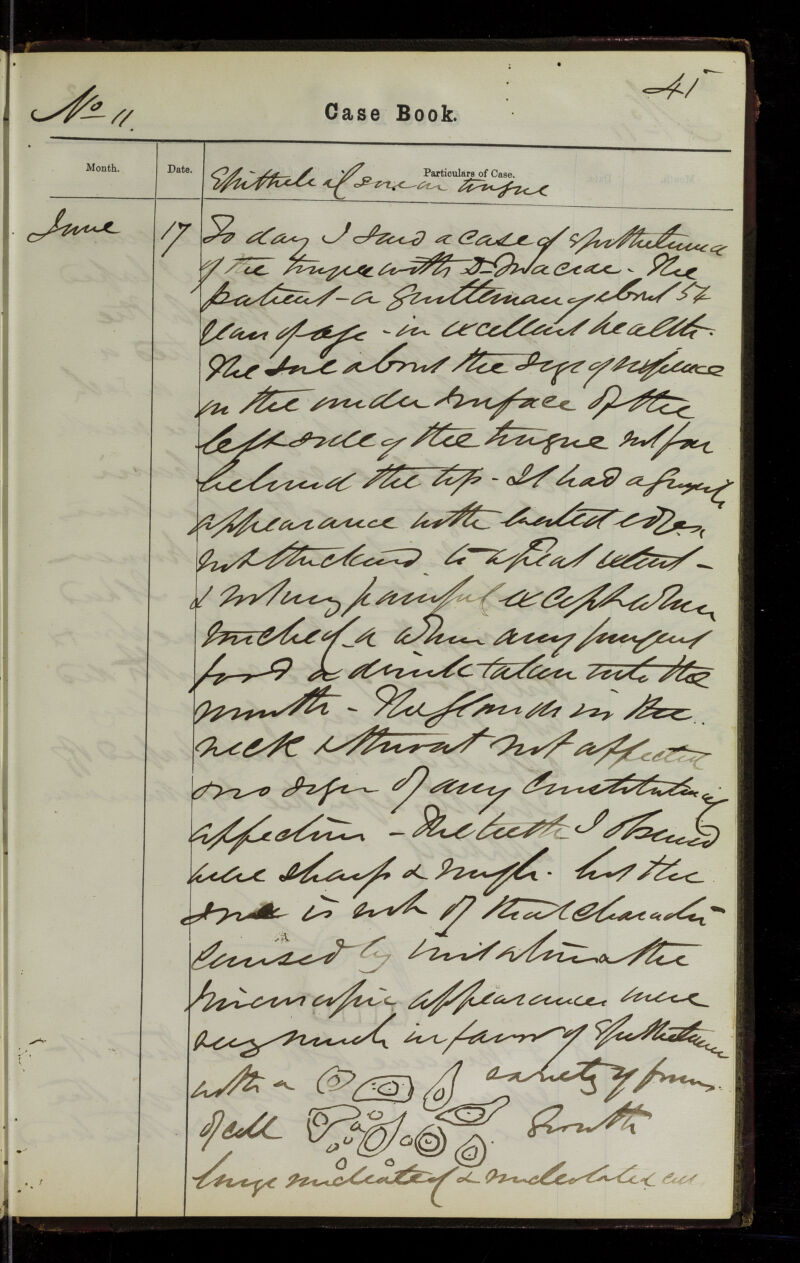 45
No 11.
Case Book.
Month. Date. Particulars of Case.
Epithelial sore on tongue
June 17 To day I saw a case of Epithelioma
of the tongue with Dr Macrae - The
patient - a gentleman of about 54
years of age - in excellent health.
The sore about the size of sixpence
on the under surface of the
left side of the tongue not far
behind the tip - It had a
appearance with everted edges
not thickened to a great extent -
& not very painful except when
touched or when any pungent
food or drink taken into the
mouth - The glands in the
neck & throat not affected
& no sign of any Constitutional
affection - The teeth I observed
were sharp & rough. but the
sore is not of that character
caused by irritation & the
microscopic appearances were
very much in favor of Epithelioma
with a variety of forms
of cell growth
large nucleated & nucleolated cells